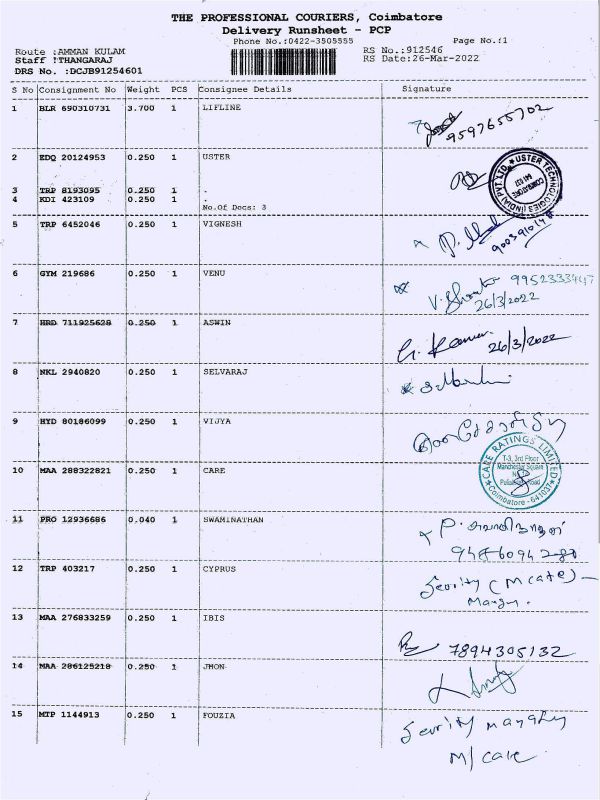 THE PROFESSIONAL COURIERS, Coimbatore
Delivery Runsheet - PCP
Phone No.:0422-3505555 Page No.:1
Route :AMMAN KULAM RS No.:912546
Staff :THANGARAJ RS Date:26-Mar-2022
DRS No. :DCJB91254601
S No Consignment No Weight PCS Consignee Details Signature
1 BLR 690310731 3.700 1 LIFLINE
9597655702
2 EDQ 20124953 0.250 1 USTER
USTER TECHNOLOGIES (INDIA) PVT. LTD.
COIMBATORE
641 037
3 TRP 8193095 0.250 1
4 KDI 423109 0.250 1
No.Of Docs: 3
5 TRP 6452046 0.250 1 VIGNESH
6 GYM 219686 0.250 1 VENU
9952333447
26/3/2022
7 HRD 711925628 0.250 1 ASWIN
26/3/2022
8 NKL 2940820 0.250 1 SELVARAJ
9 HYD 80186099 0.250 1 VIJYA
CARE RATINGS LIMITED
T-3, 3rd Floor
Manchester Square
Coimbatore - 641037
10 MAA 288322821 0.250 1 CARE
11 PRO 12936686 0.040 1 SWAMINATHAN
12 TRP 403217 0.250 1 CYPRUS
13 MAA 276833259 0.250 1 IBIS
7894305132
14 MAA 286125218 0.250 1 JHON
15 MTP 1144913 0.250 1 FOUZIA
M/ care